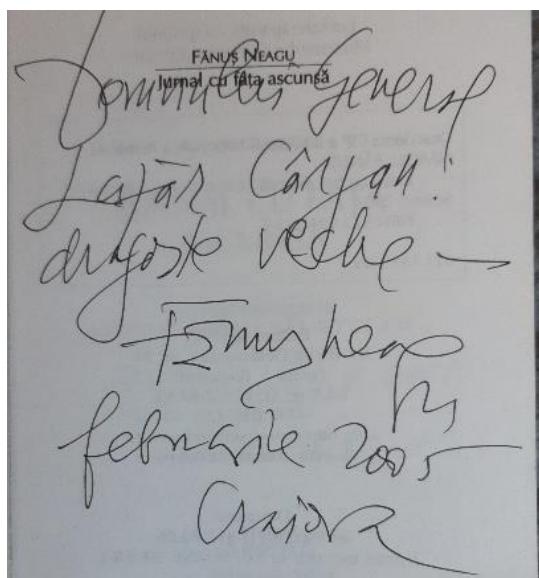 FĂNUȘ NEAGU
Jurnal cu fața ascunsă
Domnului General
Lazăr Cârjan!
dragoste veche —
Fănuș Neagu
februarie 2005
Craiova